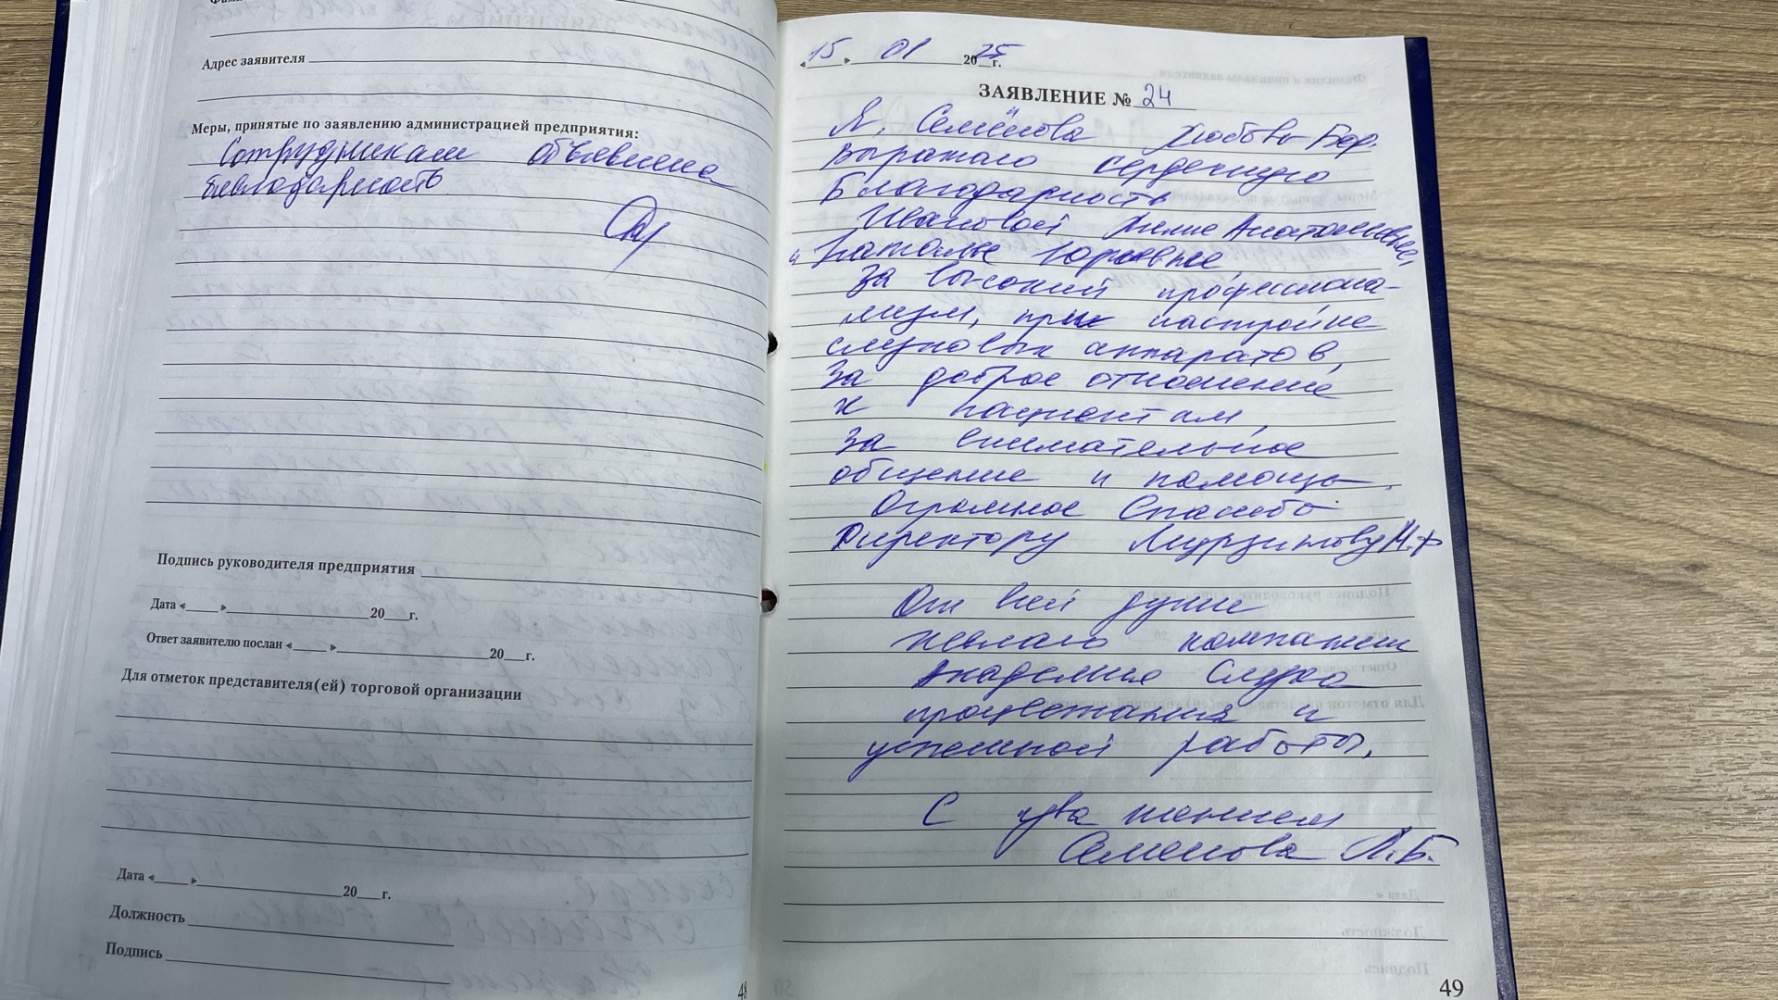 Адрес заявителя
Меры, принятые по заявлению администрацией предприятия:
Сотрудникам объявлена
благодарность
Подпись руководителя предприятия
Дата «___»___20__г.
Ответ заявителю послан «___»___20__г.
Для отметок представителя(ей) торговой организации
Дата «___»___20__г.
Должность
Подпись
48
«15» 01 2025г.
ЗАЯВЛЕНИЕ № 24
Я, Семёнова Любовь Бор.
выражаю сердечную
Благодарность
Ивановой Лилие Анатольевне,
и Наталье Юрьевне
За высокий профессиона-
лизм, при настройке
слуховых аппаратов,
За доброе отношение
к пациентам,
За внимательное
общение и помощь.
Огромное Спасибо
Директору Мурзинову М.Ф
От всей души
желаю компании
Академия Слуха
процветания и
успешной работы.
С уважением
Семенова Л.Б.
49